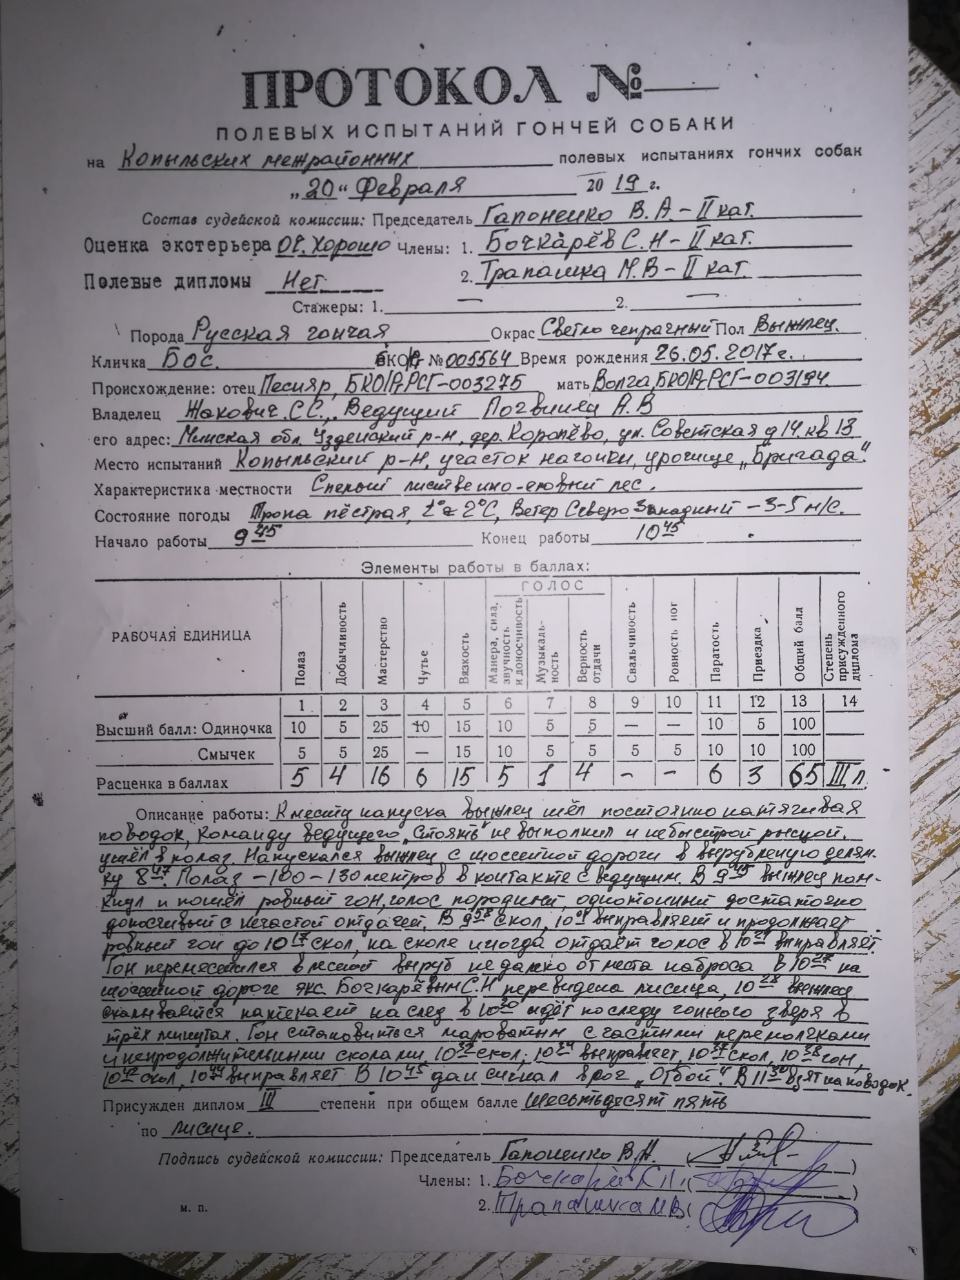 ПРОТОКОЛ №
ПОЛЕВЫХ ИСПЫТАНИЙ ГОНЧЕЙ СОБАКИ
на Копыльских межрайонных полевых испытаниях гончих собак
„20“ Февраля 2019 г.
Состав судейской комиссии: Председатель Гапоненко В.А – II кат.
Оценка экстерьера Оч. Хорошо Члены: 1. Бочкарёв С.Н – II кат.
Полевые дипломы Нет 2. Трапашка М.В – II кат.
Стажеры: 1. — 2. —
Порода Русская гончая Окрас Светло чепрачный Пол Выжлец.
Кличка Бос. № 005564 Время рождения 26.05.2017г.
Происхождение: отец Песняр, БКО/РСГ-003275 мать Волга, БКО/РСГ-003194.
Владелец Жакович С.С., Ведущий Логвинец А.В
его адрес: Минская обл. Узденский р-н, дер. Королёво, ул. Советская д 14. кв 13
Место испытаний Копыльский р-н, участок нагонки, урочище „Бригада“.
Характеристика местности Спелый лиственно-еловый лес.
Состояние погоды Тропа пёстрая, t° 2°С, Ветер Северо Западный – 3-5 м/с.
Начало работы 9 45 Конец работы 10 45
Элементы работы в баллах:
РАБОЧАЯ ЕДИНИЦА Полаз Добычливость Мастерство Чутье Вязкость ГОЛОС Манера, сила, звучность и доносчивость Музыкальность Верность отдачи Свальчивость Ровность ног Паратость Приездка Общий балл Степень присужденного диплома
1 2 3 4 5 6 7 8 9 10 11 12 13 14
Высший балл: Одиночка 10 5 25 10 15 10 5 5 — — 10 5 100
Смычек 5 5 25 — 15 10 5 5 5 5 10 10 100
Расценка в баллах 5 4 16 6 15 5 1 4 - - 6 3 65 III л.
Описание работы: К месту напуска выжлец шёл постоянно натягивая
поводок, Команду ведущего „Стоять“ не выполнил и небыстрой рысцой
ушёл в полаз. Напускался выжлец с шоссейной дороги в вырубленую делян-
ку 8 47. Полаз – 100 – 130 метров в контакте с ведущим. В 9 45 выжлец пом-
кнул и пошёл ровный гон, голос породный, однотонный достаточно
доносчивый с нечастой отдачей. В 9 58 скол, 10 01 выправляет и продолжает
ровный гон до 10 17 скол, на сколе иногда отдаёт голос в 10 21 выправляет.
Гон переместился в лесной выруб не далеко от места наброса в 10 27 на
шоссейной дороге экс. Бочкарёвым С.Н перевидена лисица, 10 28 выжлец
скалывается натекает на след в 10 30 идёт по следу гонного зверя в
трёх минутах. Гон становиться мароватым с частыми перемолчками
и непродолжительными сколами, 10 32 скол, 10 34 выправляет, 10 37 скол, 10 38 гон,
10 42 скол, 10 44 выправляет В 10 45 дан сигнал в рог „Отбой“. В 11 30 взят на поводок.
Присужден диплом III степени при общем балле шестьдесят пять
по лисице.
Подпись судейской комиссии: Председатель Гапоненко В.А.
Члены: 1. Бочкарёв С.Н.
м. п. 2. Трапашка М.В.